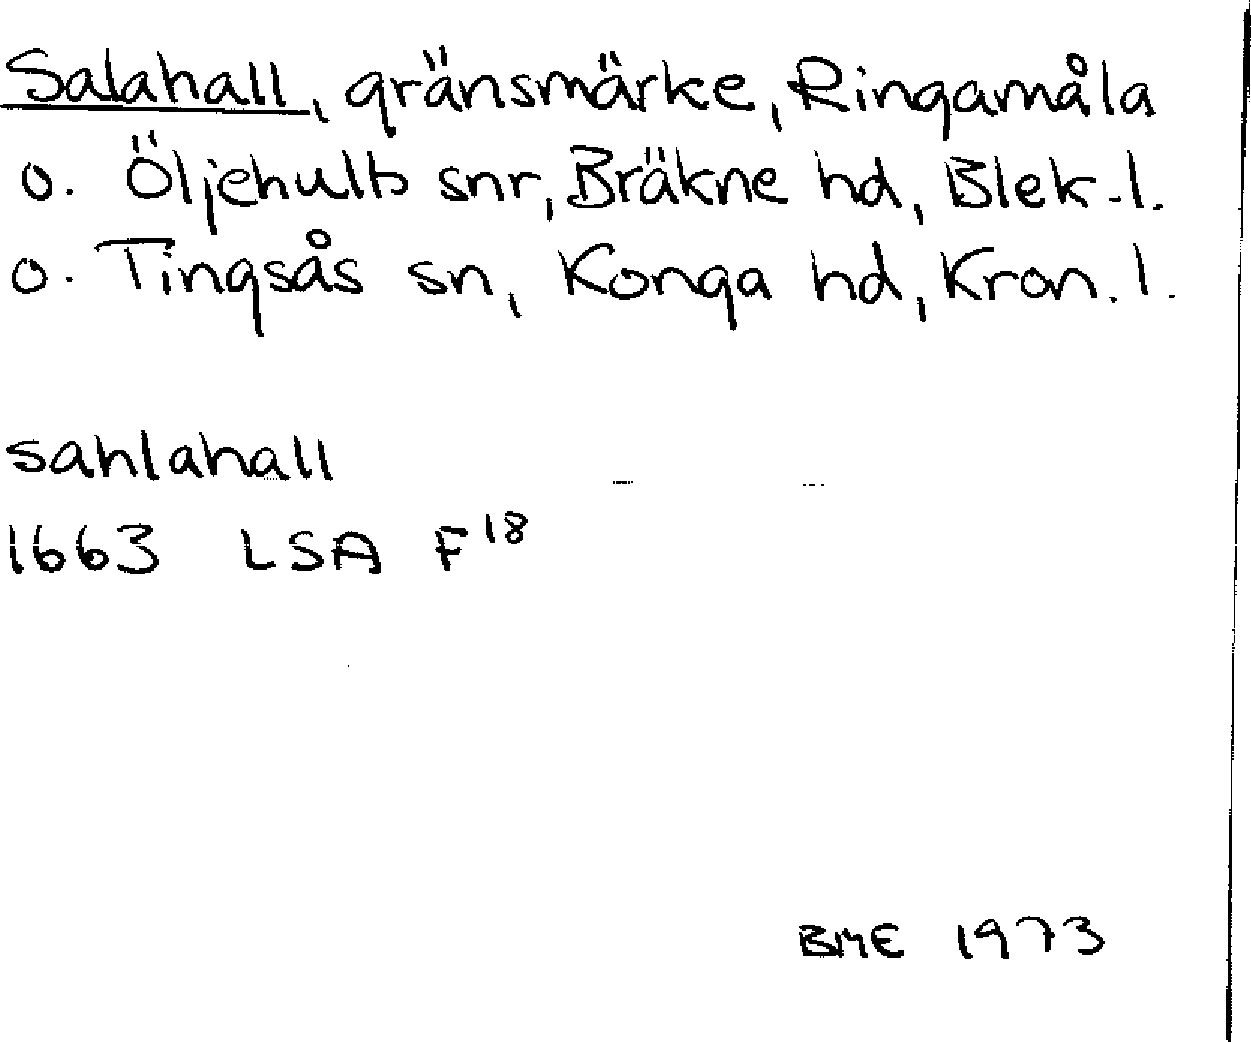 Salahall, gränsmärke, Ringamåla
o. Öljehults snr, Bräkne hd, Blek. l.
o. Tingsås sn, Konga hd, Kron. l.
sahlahall
1663 LSA F18
BME 1973